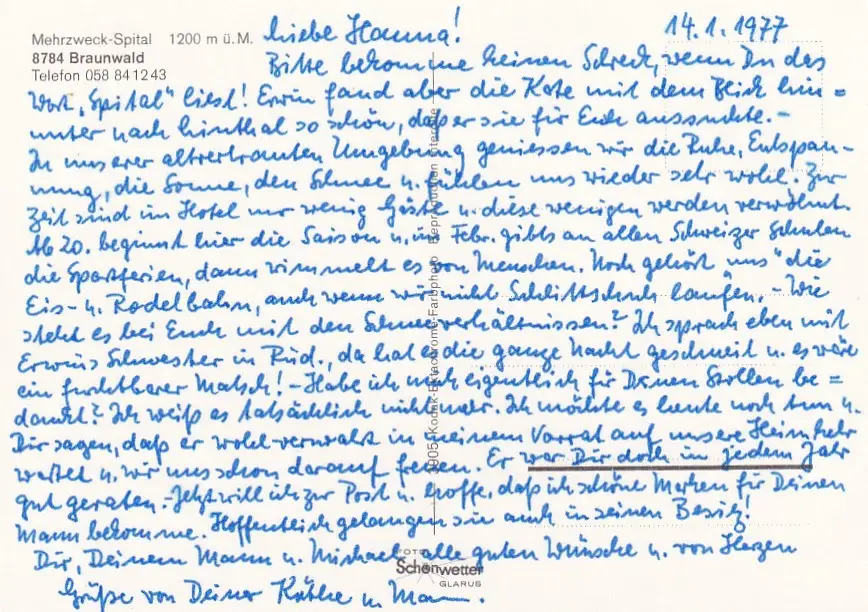 Mehrzweck-Spital 1200 m ü. M.
8784 Braunwald
Telefon 058 84 12 43
14.1.1977
Liebe Hanna!
Bitte bekomme keinen Schreck, wenn Du das
Wort „Spital" liest! Erwin fand aber die Karte mit dem Blick hin=
unter nach Linthal so schön, daß er sie für Euch aussuchte. –
In unserer altvertrauten Umgebung geniessen wir die Ruhe, Entspan-
nung, die Sonne, den Schnee u. fühlen uns wieder sehr wohl. Zur
Zeit sind im Hotel nur wenig Gäste u. diese wenigen werden verwöhnt.
Ab 20. beginnt hier die Saison u. im Febr. gibts an allen Schweizer Schulen
die Sportferien, dann wimmelt es von Menschen. Noch gehört uns "die
Eis- u. Rodelbahn, auch wenn wir nicht Schlittschuh laufen. – Wie
steht es bei Euch mit den Schneeverhältnissen? Ich sprach eben mit
Erwins Schwester in Rüd., da hat es die ganze Nacht geschneit u. es wäre
ein furchtbarer Matsch! – Habe ich mich eigentlich für Deinen Stollen be=
dankt? Ich weiß es tatsächlich nicht mehr. Ich möchte es heute noch tun u.
Dir sagen, daß er wohlverwahrt in meinem Vorrat auf unsere Heimkehr
wartet u. wir uns schon darauf freuen. Er war Dir doch in jedem Jahr
gut geraten. – Jetzt will ich zur Post u. hoffe, daß ich schöne Marken für Deinen
Mann bekomme. Hoffentlich gelangen sie auch in seinen Besitz!
Dir, Deinem Mann u. Michael alle guten Wünsche u. von Herzen
Grüße von Deiner Käthe u. Mann.
FOTO
Schönwetter
GLARUS
Kodak-Ektachrome-Farbphoto Reproduction interdite